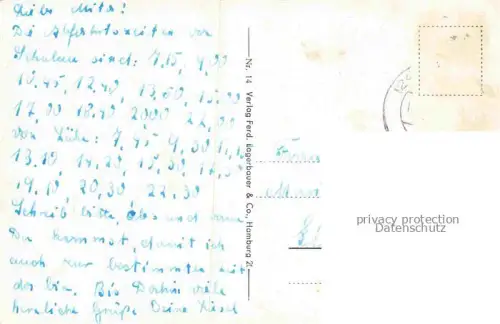 Die Abfahrtszeiten der
sind: 7,15, 9,00
10.45, 12.40, 13,50,
17,00 18,40 2000 22,00
von 7,45 9,30
13.10, 14,20,
19,10, 20,30 22,30
Schreib bitte, ob und wann
Du kommst, damit ich
auch zur bestimmten Zeit
da bin. Bis Dahin viele
herzliche Grüße Deine Liesel
Nr. 14 Verlag Ferd. Lagerbauer & Co., Hamburg
privacy protection
Datenschutz